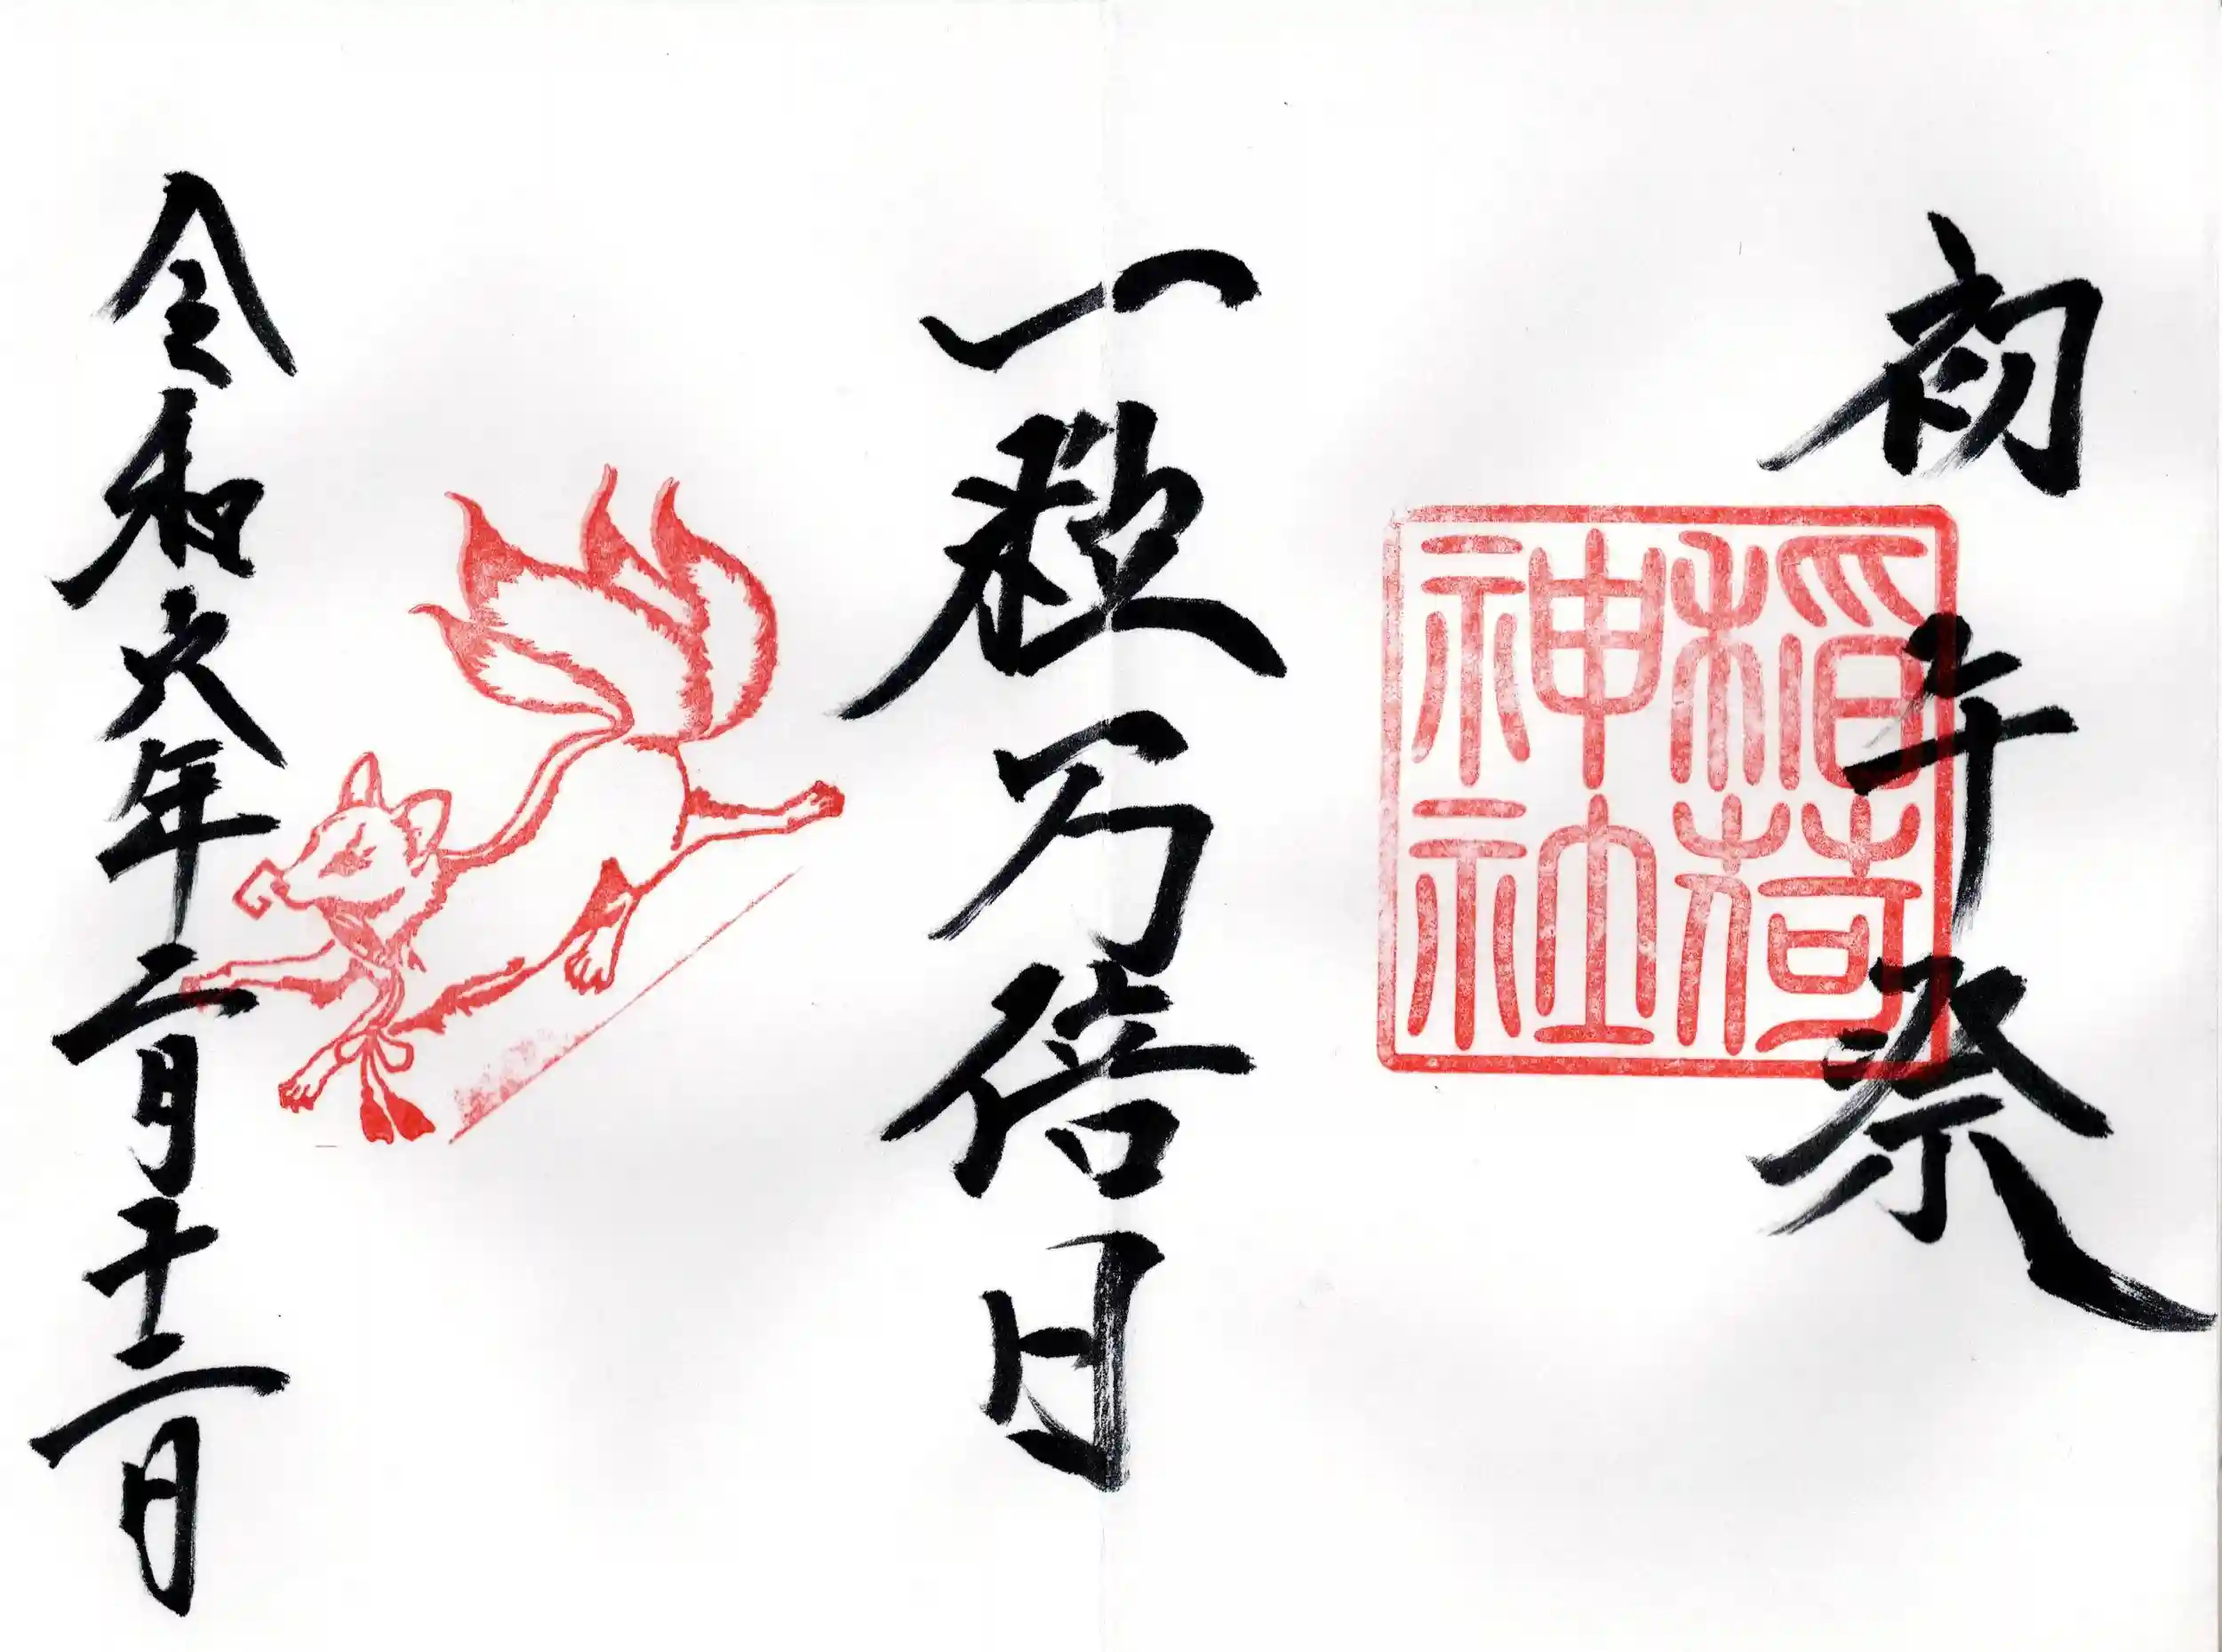 初午祭
稲荷神社
一粒万倍日
令和六年二月十二日